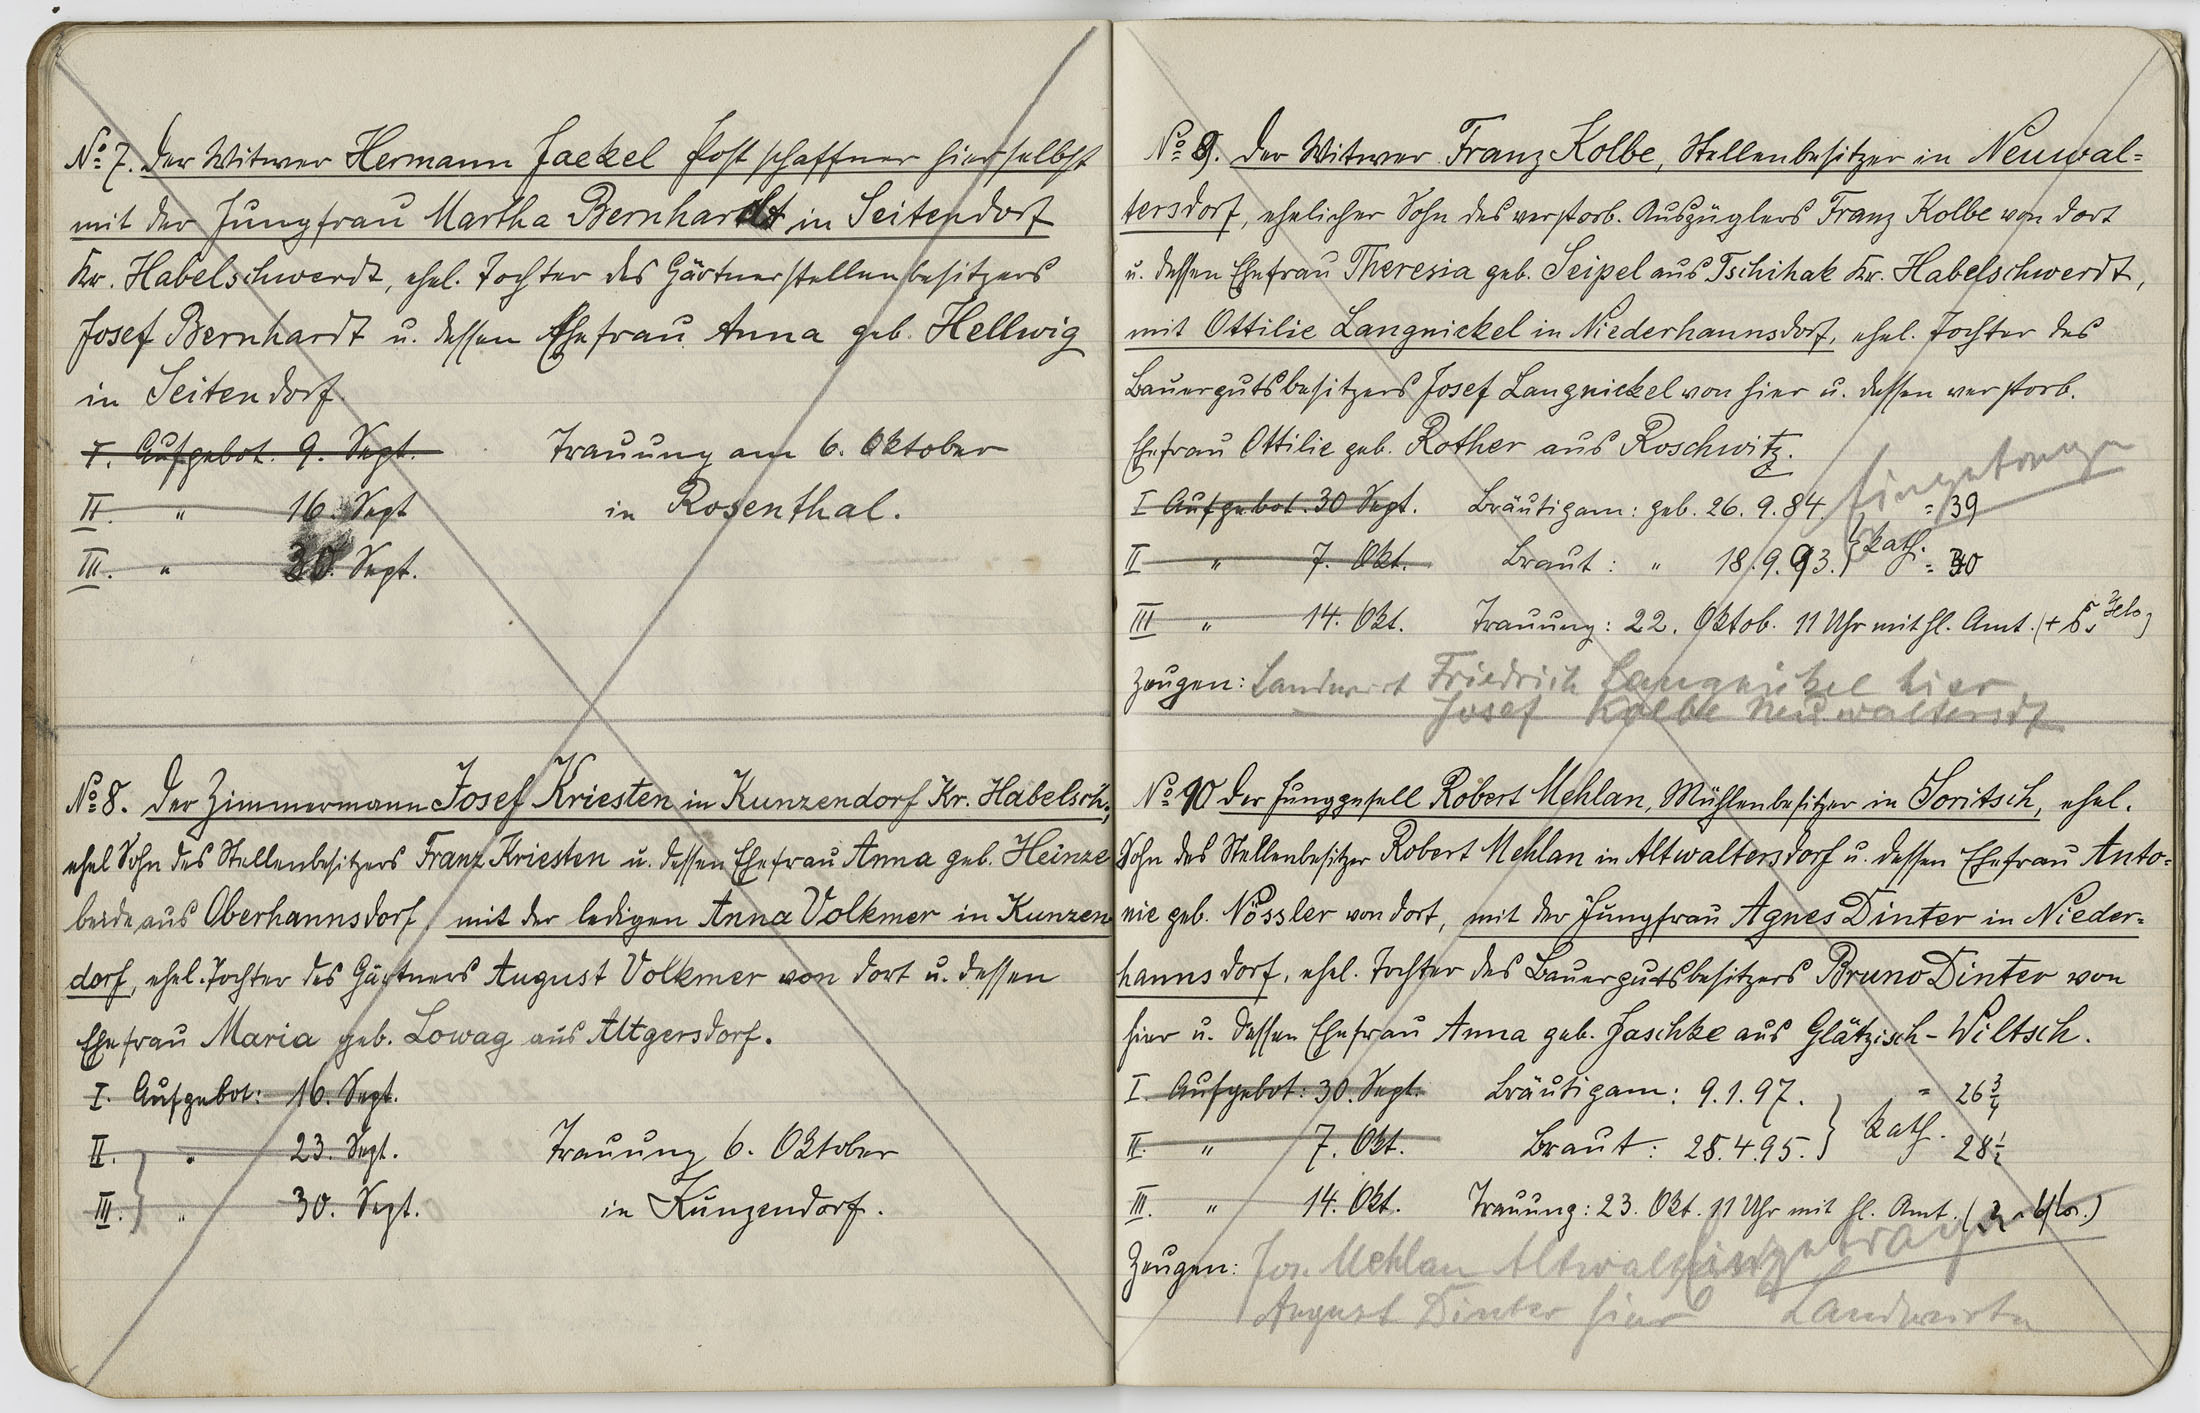 No 7. Der Witwer Hermann Jaekel Postschaffner hierselbst
mit der Jungfrau Martha Bernhardt in Seitendorf
Kr. Habelschwerdt, ehel. Tochter des Gärtnerstellenbesitzers
Josef Bernhardt u. dessen Ehefrau Anna geb. Hellwig
in Seitendorf.
I. Aufgebot. 9. Sept. Trauung am 6. Oktober
II. " 16. Sept in Rosenthal.
III. " 30. Sept.
No 8. Der Zimmermann Josef Kriesten in Kunzendorf Kr. Habelsch.,
ehel Sohn des Stellenbesitzers Franz Kriesten u. dessen Ehefrau Anna geb. Heinze
beide aus Oberhannsdorf, mit der ledigen Anna Volkmer in Kunzen
dorf, ehel. Tochter des Gärtners August Volkmer von dort u. dessen
Ehefrau Maria geb. Lowag aus Altgersdorf.
I. Aufgebot: 16. Sept.
II. " 23. Sept. Trauung 6. Oktober
III. " 30. Sept. in Kunzendorf.
No 9. Der Witwer Franz Kolbe, Stellenbesitzer in Neuwal=
tersdorf, ehelicher Sohn des verstorb. Auszüglers Franz Kolbe von dort
u. dessen Ehefrau Theresia geb. Seipel aus Tschihak Kr. Habelschwerdt,
mit Ottilie Langnickel in Niederhannsdorf, ehel. Tochter des
Bauergutsbesitzers Josef Langnickel von hier u. dessen verstorb.
Ehefrau Ottilie geb. Rother aus Roschwitz.
Eingetragen
I Aufgebot. 30 Sept. Bräutigam: geb. 26. 9. 84. = 39
II " 7. Okt. Braut: " 18. 9. 93. } kath. = 30
III " 14. Okt. Trauung: 22. Oktob. 11 Uhr mit hl. Amt.
Zeugen: Landwirt Friedrich Langnickel hier,
Josef Kolbe Neuwaltersdf
No 10 Der Junggesell Robert Mehlan, Mühlenbesitzer in Soritsch, ehel.
Sohn des Stellenbesitzer Robert Mehlan in Altwaltersdorf u. dessen Ehefrau Anto=
nie geb. Nössler von dort, mit der Jungfrau Agnes Dinter in Nieder=
hannsdorf, ehel. Tochter des Bauergutsbesitzers Bruno Dinter von
hier u. dessen Ehefrau Anna geb. Jaschke aus Glätzisch-Wiltsch.
I. Aufgebot: 30. Sept. Bräutigam: 9. 1. 97. = 26 3/4
II. " 7. Okt. Braut: 28. 4. 95. } kath. 28 1/2
III. " 14. Okt. Trauung: 23. Okt. 11 Uhr mit hl. Amt.
Eingetragen
Zeugen: Jos. Mehlan Altwalt
August Dinter hier Landwirte